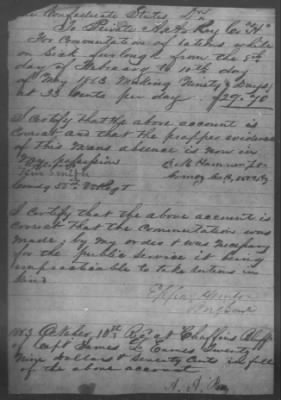 The Confederate States Dr.
To Private Co. "H"
For Commutation of rations while
on Sick furlough from the 8th
day of February to 10th day
of May 1863 Making Ninety days
at 33 cents per day $29.70
I certify that the above account is
correct and that the proper evidence
of this mans absence is now in
my possession
Comdg Regt
I certify that the above account is
correct that the Commutation was
made by my order & was necessary
for the public service it being
impracticable to take rations in
kind
1863 October 18th Recd at Chaffins Bluff
of Capt James Twenty
Nine dollars & Seventy Cents in full
of the above account